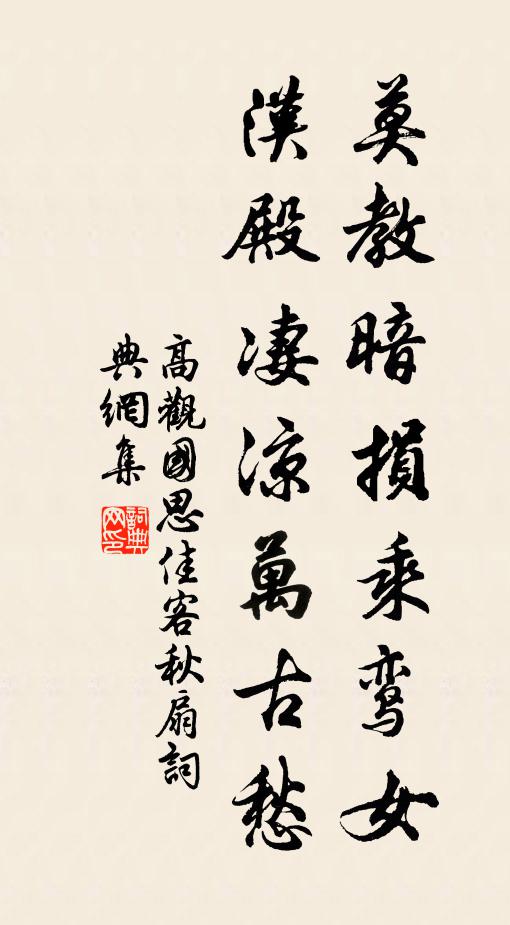 莫教暗損乘鸞女
漢殿凄涼萬古愁
高觀國思佳客秋扇詞
典網集
詞典
网印